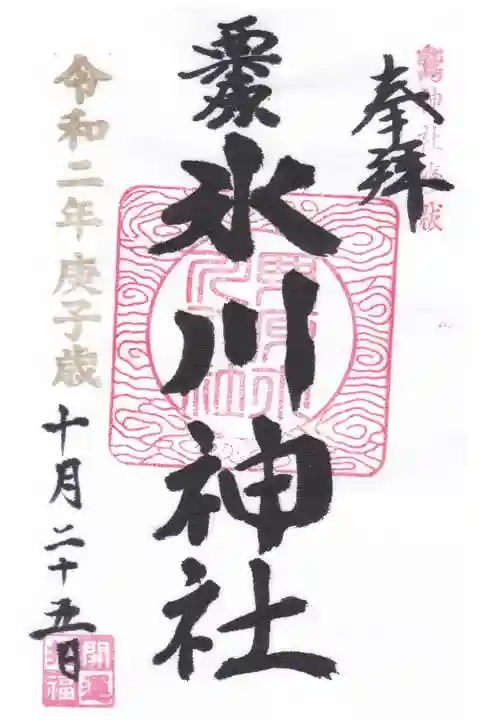 奉拝
鷲神社
栗原
氷川神社
令和二年庚子歳
十月二十五日
開運
招福